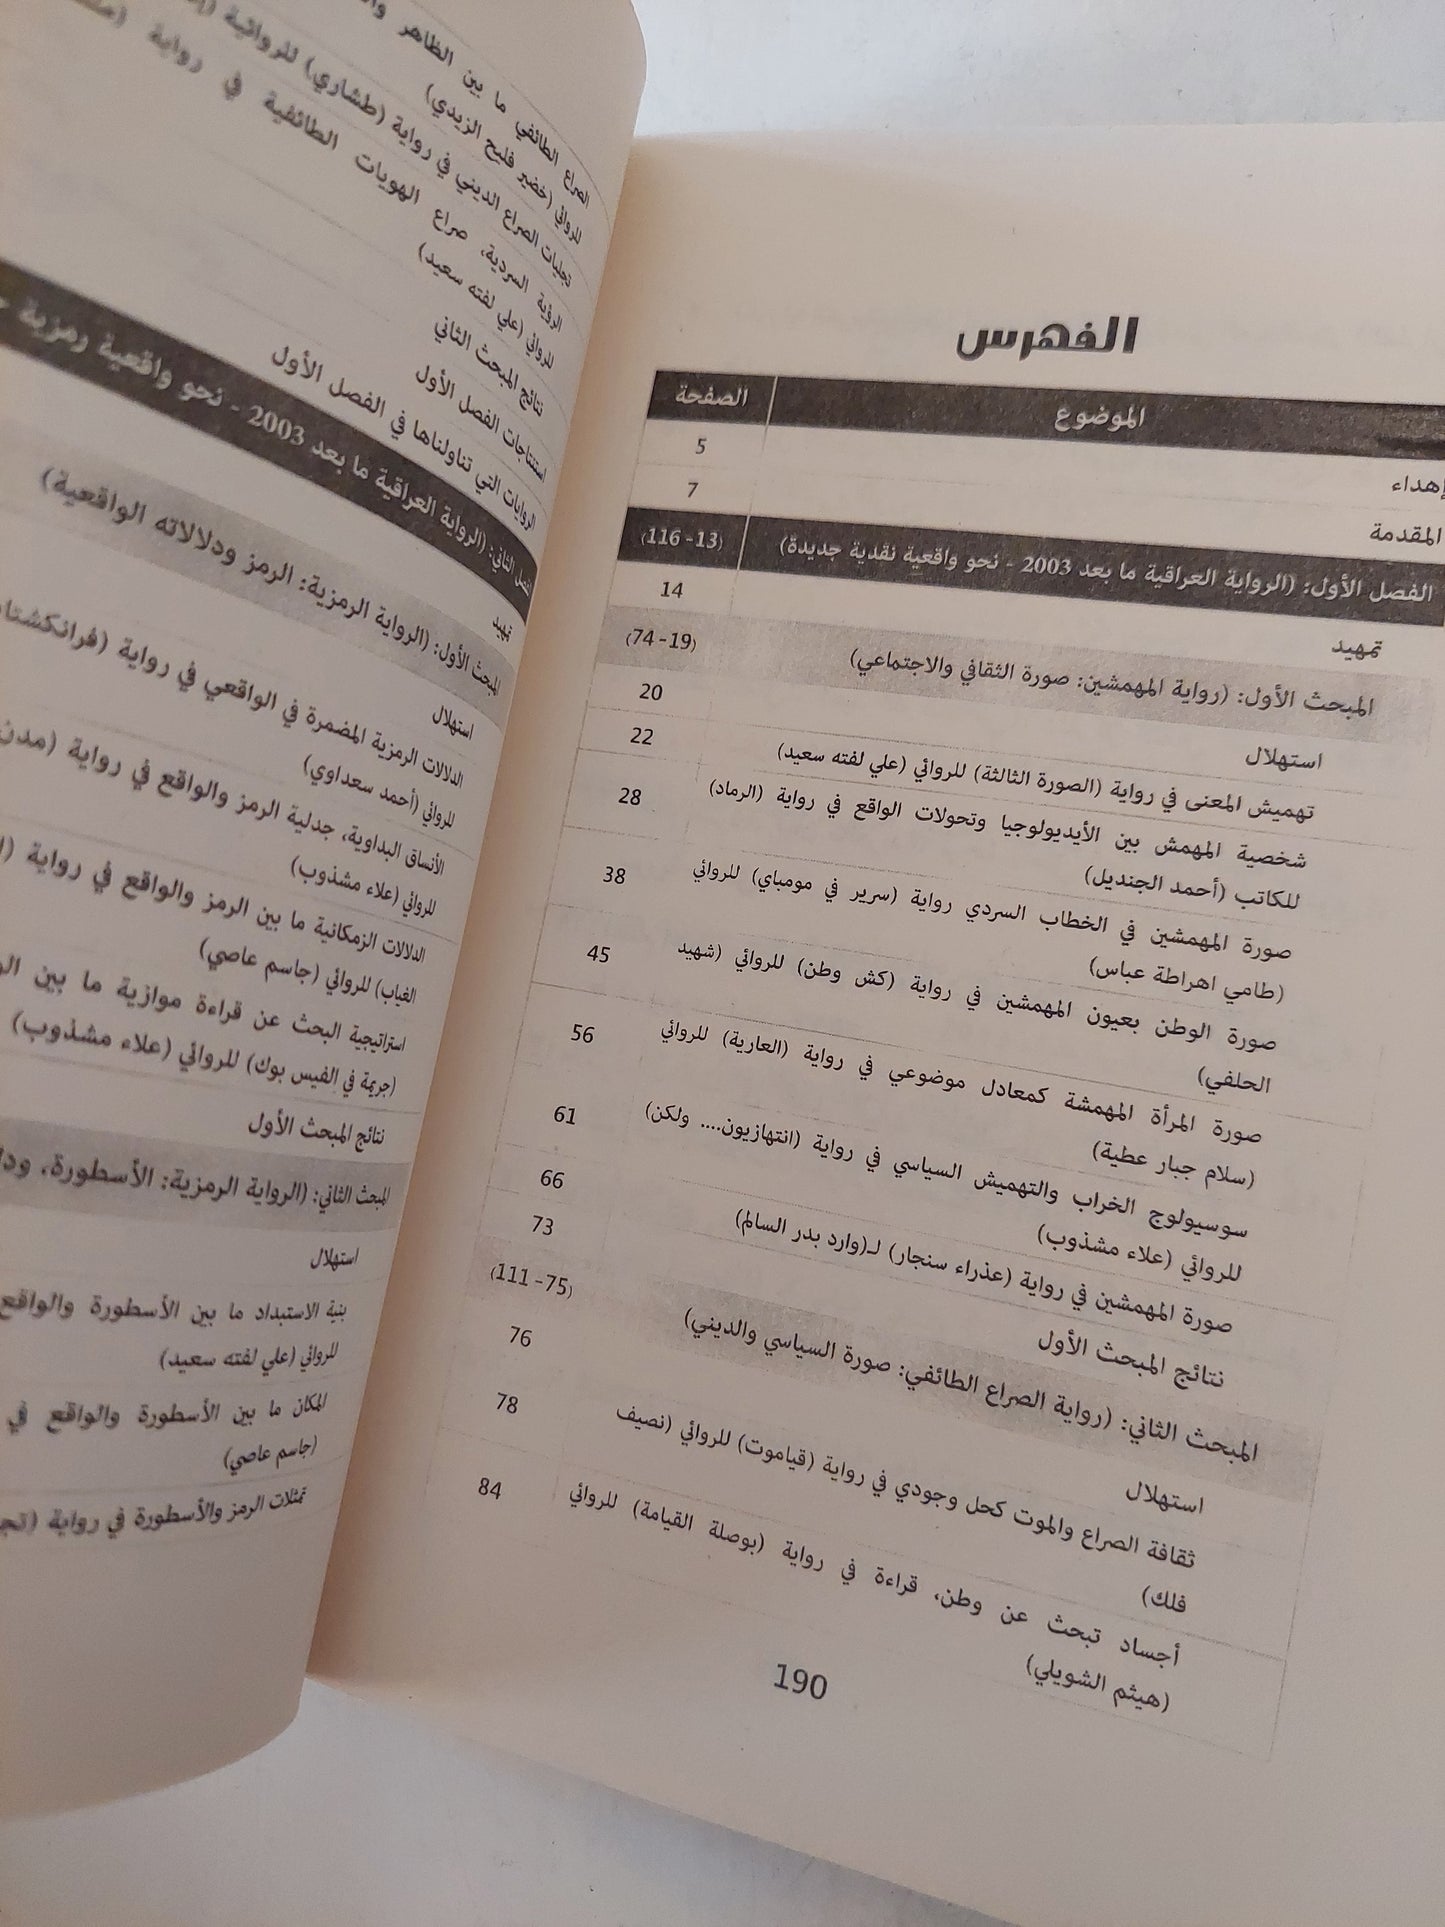 الفهرس
الموضوع الصفحة
إهداء 5
المقدمة 7
الفصل الأول: (الرواية العراقية ما بعد 2003 - نحو واقعية نقدية جديدة) (13-116)
تمهيد 14
المبحث الأول: (رواية المهمشين: صورة الثقافي والاجتماعي) (19-74)
استهلال 20
تهميش المعنى في رواية (الصورة الثالثة) للروائي (علي لفته سعيد) 22
شخصية المهمش بين الأيديولوجيا وتحولات الواقع في رواية (الرماد) 28
للكاتب (أحمد الجنديل)
صورة المهمشين في الخطاب السردي رواية (سرير في مومباي) للروائي 38
(طامي اهراطة عباس)
صورة الوطن بعيون المهمشين في رواية (كش وطن) للروائي (شهيد 45
الحلفي)
صورة المرأة المهمشة كمعادل موضوعي في رواية (العارية) للروائي 56
(سلام جبار عطية)
سوسيولوج الخراب والتهميش السياسي في رواية (انتهازيون.... ولكن) 61
للروائي (علاء مشذوب)
صورة المهمشين في رواية (عذراء سنجار) لـ(وارد بدر السالم) 66
نتائج المبحث الأول 73
المبحث الثاني: (رواية الصراع الطائفي: صورة السياسي والديني) (75-111)
استهلال 76
ثقافة الصراع والموت كحل وجودي في رواية (قياموت) للروائي (نصيف 78
فلك)
أجساد تبحث عن وطن، قراءة في رواية (بوصلة القيامة) للروائي 84
(هيثم الشويلي)
190
الصراع الطائفي ما بين الظاهر
للروائي (خضير فليح الزيدي)
تجليات الصراع الديني في رواية (طشاري) للروائية
الرؤية السردية، صراع الهويات الطائفية في رواية
للروائي (علي لفته سعيد)
نتائج المبحث الثاني
استنتاجات الفصل الأول
الروايات التي تناولناها في الفصل الأول
الفصل الثاني: (الرواية العراقية ما بعد 2003 - نحو واقعية رمزية
تمهيد
المبحث الأول: (الرواية الرمزية: الرمز ودلالاته الواقعية)
استهلال
الدلالات الرمزية المضمرة في الواقعي في رواية
للروائي (أحمد سعداوي)
الأنساق البداوية، جدلية الرمز والواقع في رواية (مدن
للروائي (علاء مشذوب)
الدلالات الزمكانية ما بين الرمز والواقع في رواية
الغياب) للروائي (جاسم عاصي)
استراتيجية البحث عن قراءة موازية ما بين
(جريمة في الفيس بوك) للروائي (علاء مشذوب)
نتائج المبحث الأول
المبحث الثاني: (الرواية الرمزية: الأسطورة،
استهلال
بنية الاستبداد ما بين الأسطورة والواقع
للروائي (علي لفته سعيد)
المكان ما بين الأسطورة والواقع في
(جاسم عاصي)
تمثلات الرمز والأسطورة في رواية